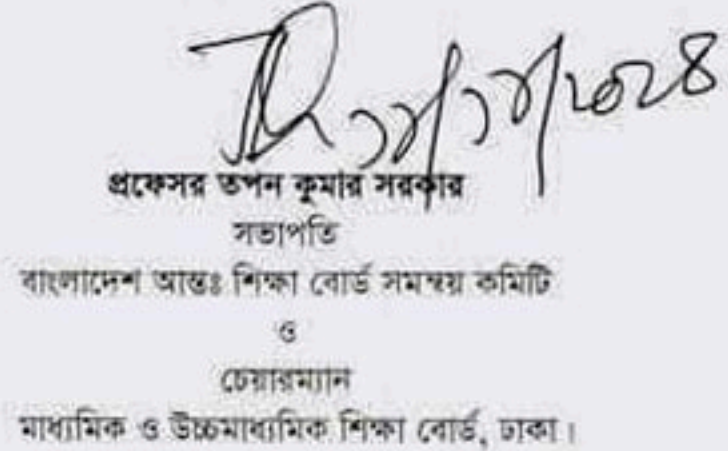 প্রফেসর তপন কুমার সরকার
সভাপতি
বাংলাদেশ আন্তঃ শিক্ষা বোর্ড সমন্বয় কমিটি
ও
চেয়ারম্যান
মাধ্যমিক ও উচ্চমাধ্যমিক শিক্ষা বোর্ড, ঢাকা।